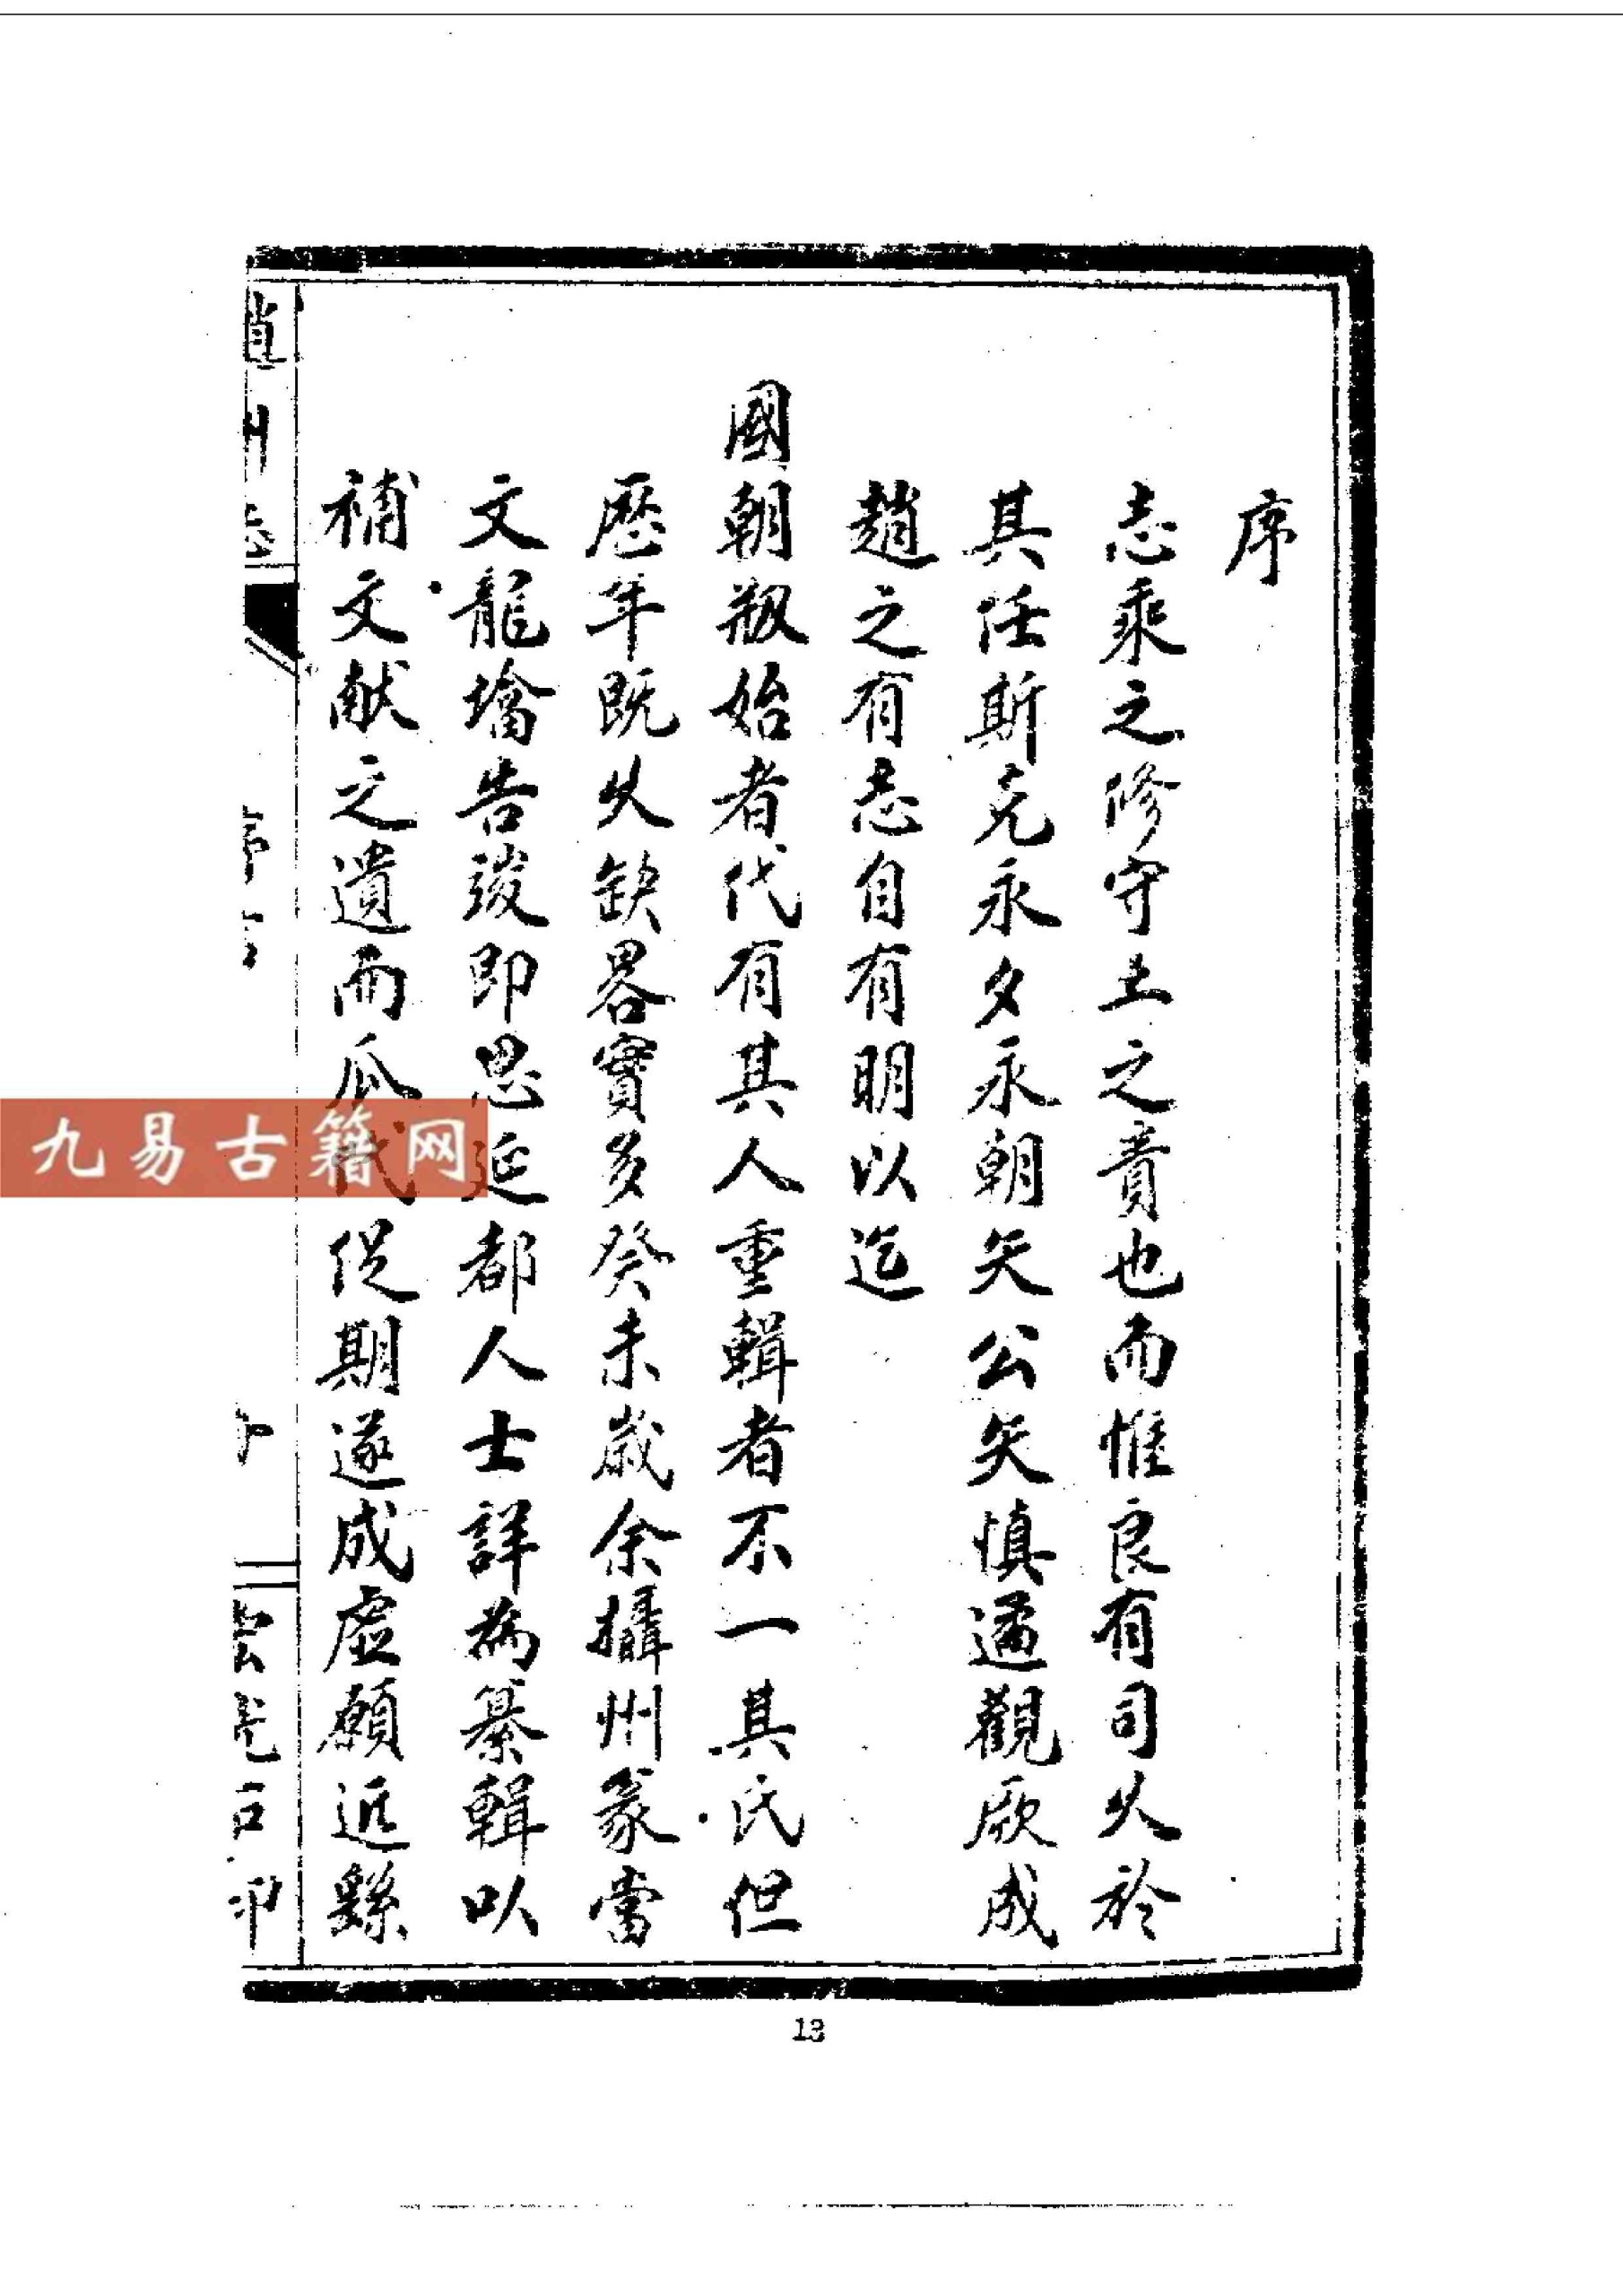 序
志乘之修守土之責也而惟良有司久於
其任斯克永夕永朝矢公矢慎遹觀厥成
趙之有志自有明以迄
國朝剏始者代有其人重輯者不一其氏但
歷年既久缺畧實多癸未歲余攝州篆當
文龍墖告竣即思延都人士詳為纂輯以
補文献之遺而瓜代促期遂成虛願近繇
趙州志
序
13
九易古籍网